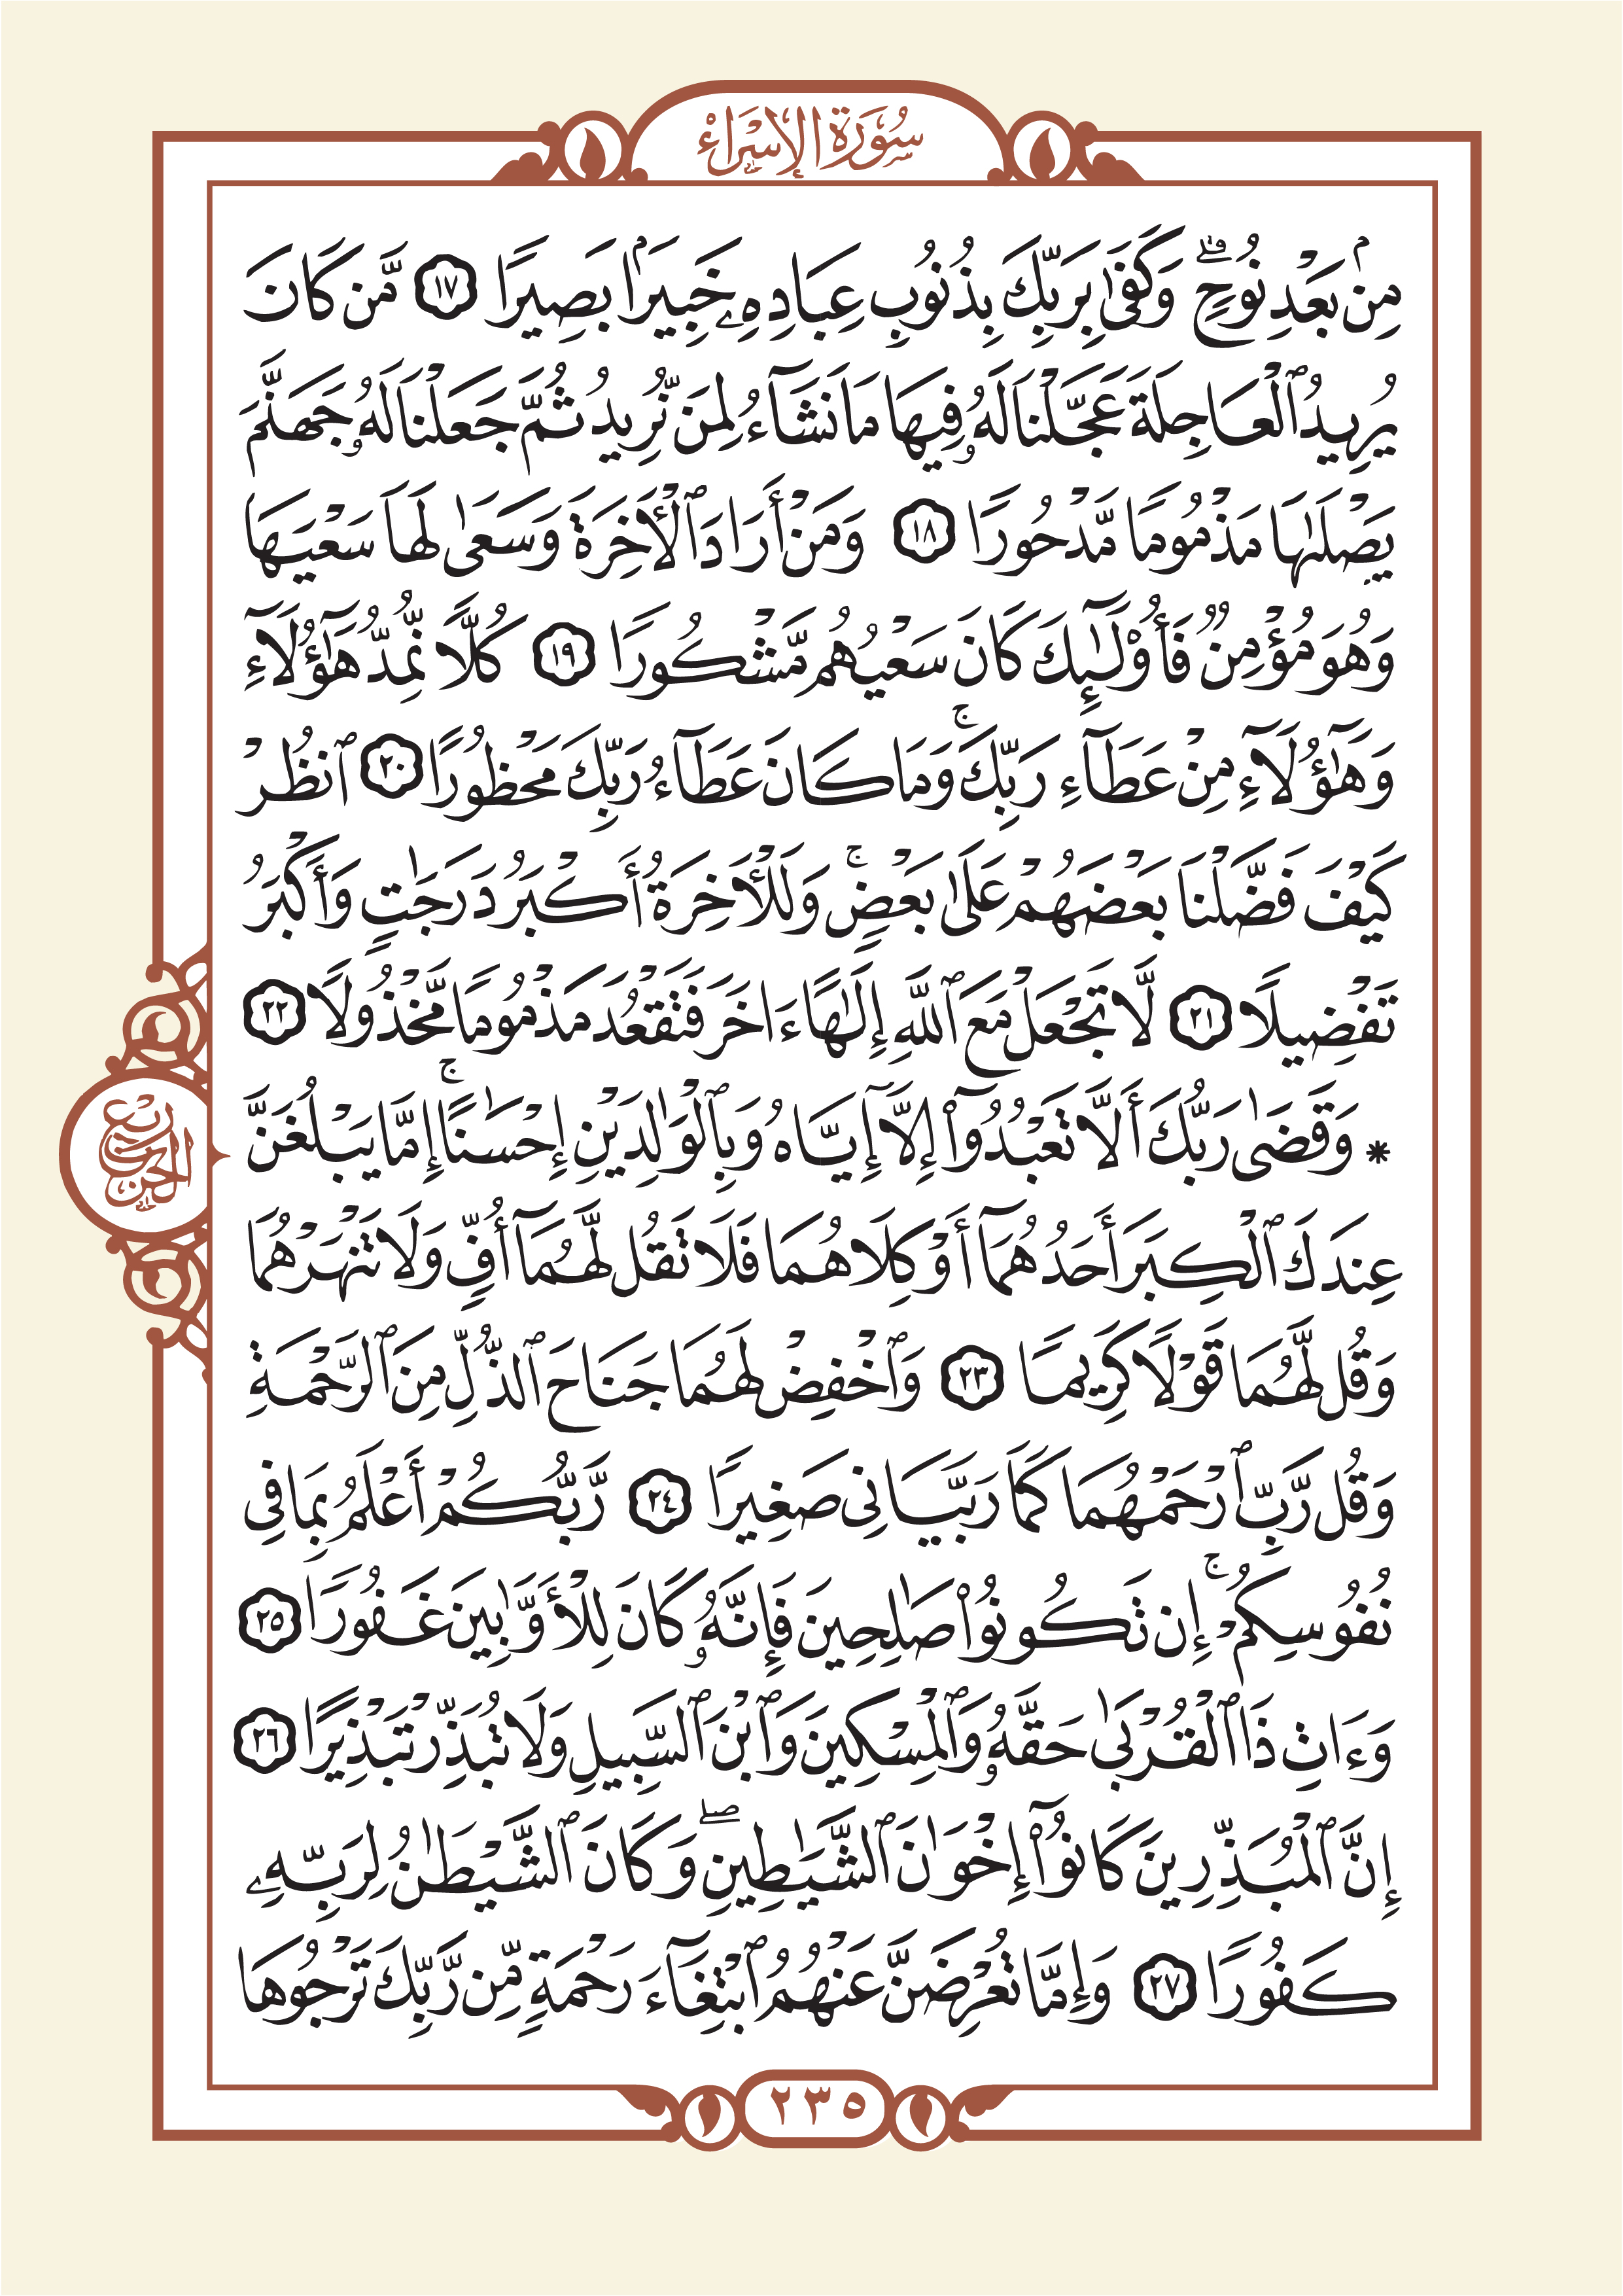 سُورَةُ الإِسْرَاءِ
مِنۢ بَعْدِ نُوحٍۗ وَكَفَىٰ بِرَبِّكَ بِذُنُوبِ عِبَادِهِۦ خَبِيرَۢا بَصِيرًا ١٧ مَّن كَانَ
يُرِيدُ ٱلْعَاجِلَةَ عَجَّلْنَا لَهُۥ فِيهَا مَا نَشَآءُ لِمَن نُّرِيدُ ثُمَّ جَعَلْنَا لَهُۥ جَهَنَّمَ
يَصْلَىٰهَا مَذْمُومًا مَّدْحُورًا ١٨ وَمَنْ أَرَادَ ٱلْأَخِرَةَ وَسَعَىٰ لَهَا سَعْيَهَا
وَهُوَ مُؤْمِنٌ فَأُو۟لَـٰٓئِكَ كَانَ سَعْيُهُم مَّشْكُورًا ١٩ كُلًّا نُّمِدُّ هَـٰٓؤُلَآءِ
وَهَـٰٓؤُلَآءِ مِنْ عَطَآءِ رَبِّكَۚ وَمَا كَانَ عَطَآءُ رَبِّكَ مَحْظُورًا ٢٠ ٱنظُرْ
كَيْفَ فَضَّلْنَا بَعْضَهُمْ عَلَىٰ بَعْضٍۚ وَلَلْأَخِرَةُ أَكْبَرُ دَرَجَـٰتٍ وَأَكْبَرُ
تَفْضِيلًا ٢١ لَّا تَجْعَلْ مَعَ ٱللَّهِ إِلَـٰهًا ءَاخَرَ فَتَقْعُدَ مَذْمُومًا مَّخْذُولًا ٢٢
* وَقَضَىٰ رَبُّكَ أَلَّا تَعْبُدُوٓا۟ إِلَّآ إِيَّاهُ وَبِٱلْوَٰلِدَيْنِ إِحْسَـٰنًاۚ إِمَّا يَبْلُغَنَّ
عِندَكَ ٱلْكِبَرَ أَحَدُهُمَآ أَوْ كِلَاهُمَا فَلَا تَقُل لَّهُمَآ أُفٍّ وَلَا تَنْهَرْهُمَا
وَقُل لَّهُمَا قَوْلًا كَرِيمًا ٢٣ وَٱخْفِضْ لَهُمَا جَنَاحَ ٱلذُّلِّ مِنَ ٱلرَّحْمَةِ
وَقُل رَّبِّ ٱرْحَمْهُمَا كَمَا رَبَّيَانِى صَغِيرًا ٢٤ رَّبُّكُمْ أَعْلَمُ بِمَا فِى
نُفُوسِكُمْۚ إِن تَكُونُوا۟ صَـٰلِحِينَ فَإِنَّهُۥ كَانَ لِلْأَوَّٰبِينَ غَفُورًا ٢٥
وَءَاتِ ذَا ٱلْقُرْبَىٰ حَقَّهُۥ وَٱلْمِسْكِينَ وَٱبْنَ ٱلسَّبِيلِ وَلَا تُبَذِّرْ تَبْذِيرًا ٢٦
إِنَّ ٱلْمُبَذِّرِينَ كَانُوٓا۟ إِخْوَٰنَ ٱلشَّيَـٰطِينِۖ وَكَانَ ٱلشَّيْطَـٰنُ لِرَبِّهِۦ
كَفُورًا ٢٧ وَإِمَّا تُعْرِضَنَّ عَنْهُمُ ٱبْتِغَآءَ رَحْمَةٍ مِّن رَّبِّكَ تَرْجُوهَا
ربع الحزب
٢٣٥